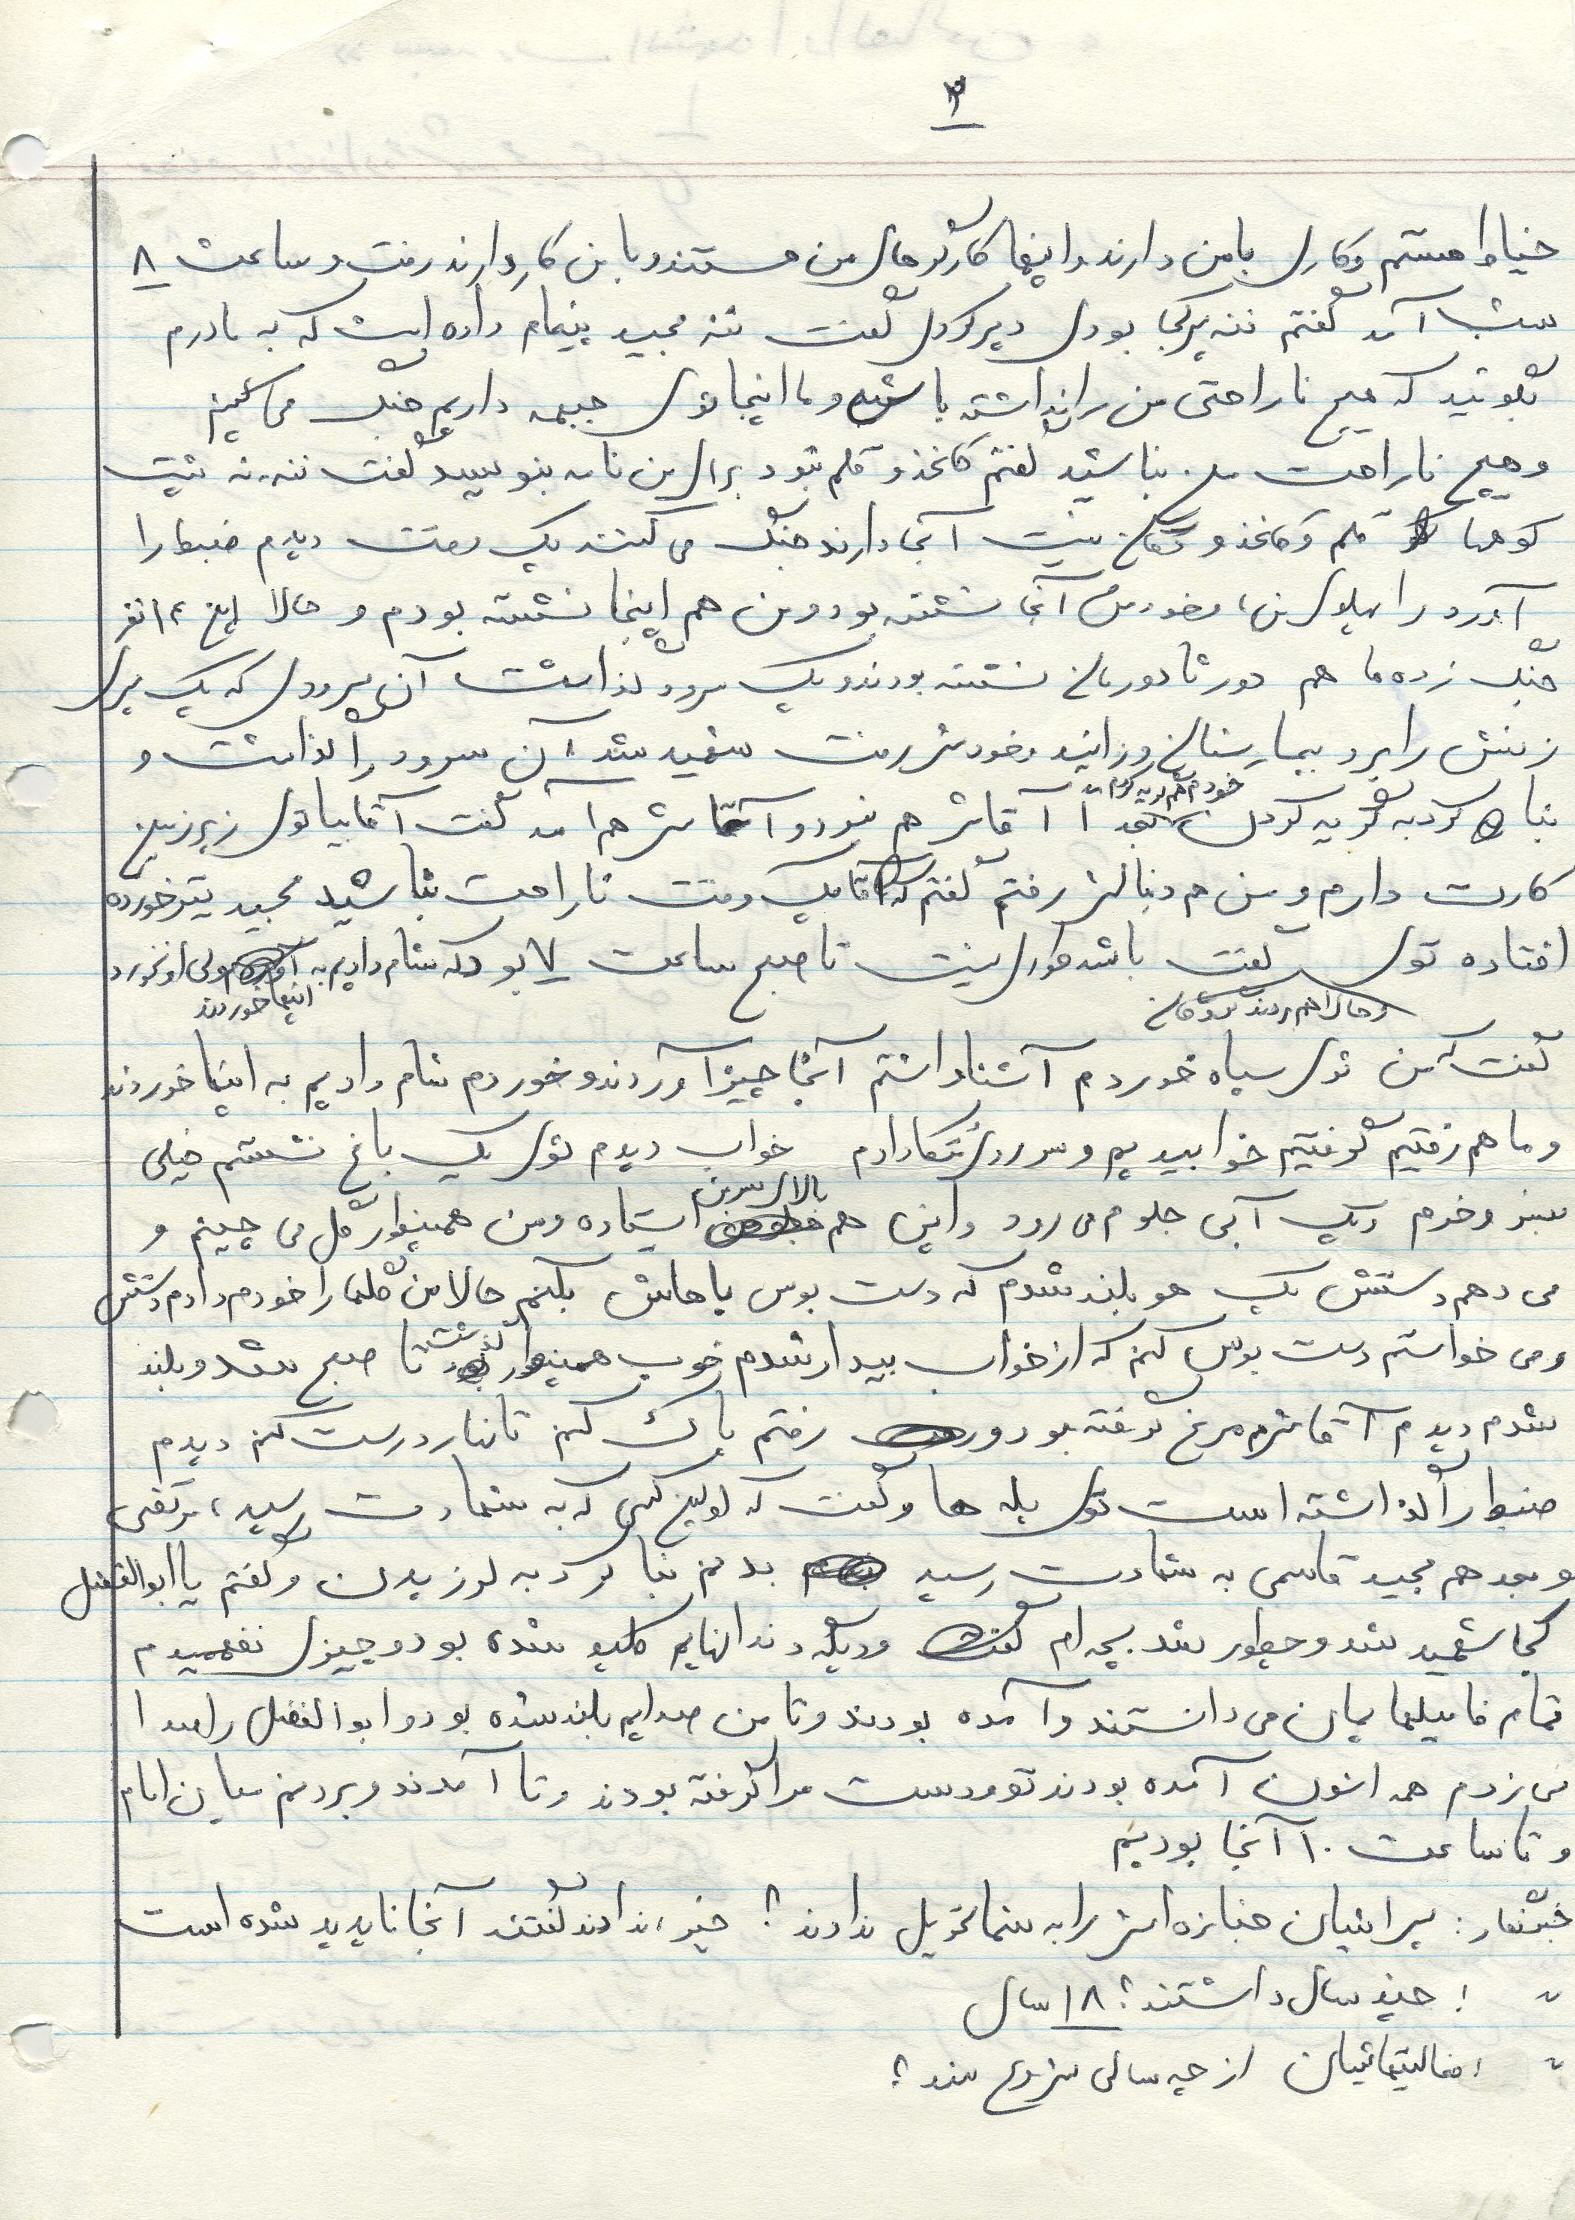 ۳
خیاط هستم و کاری با من دارند و اینها کارگرهای من هستند و با من کار دارند رفت و ساعت ۸
شب آمد گفتم ننه پسر کجا بودی دیر کردی گفت ننه مجید پیغام داده است که به مادرم
بگوئید که هیچ ناراحتی من را نداشته باشید و ما اینجا توی جبهه داریم جنگ می کنیم
و هیچ ناراحت من نباشید گفتم کاغذ و قلم نبود برای من نامه بنویسید گفت ننه، نه پشت
کوهها قلم و کاغذ و دکان نیست آنجا دارند جنگ می کنند یک وقت دیدم ضبط را
آورد را پهلوی من، و خودش آنجا نشسته بود و من هم اینجا نشسته بودم و حالا این ۱۰ نفر
جنگ زده ها هم دور تا دورمان نشسته بودند و یک سرود گذاشت آن سرودی که یک پسری
زنش را برد بیمارستان و زائید و خودش رفت شهید شد آن سرود را گذاشت و
بنا کرد به گریه کردن خودم هم گریه کردم بعد آقاش هم نبود و آقاش هم آمد گفت آقا بیا توی زیرزمین
کارت دارم و من هم دنبالش رفتم گفتم که آقا یک وقت ناراحت نباشید مجید تیر خورده
افتاده توی گفت باشد طوری نیست تا صبح ساعت ۷ بود که شام دادیم به ولی او نخورد
و حالا هم اینها خوردند
گفت که من توی سپاه خوردم آشنا داشتم آنجا چیز آوردند و خوردم شام دادیم به اینها خوردند
و ما هم رفتیم گرفتیم خوابیدیم و سر روی متکا دادم خواب دیدم توی یک باغ نشستم خیلی
سبز و خرم و یک آبی جلوم می رود و این هم بالای سر من ایستاده و من همینطور گل می چینم و
می دهم دستش یک هو بلند شدم که دست بوس پاهاش بکنم حالا من گلها را خودم دادم دستش
و می خواستم دست بوس کنم که از خواب بیدار شدم خوب همینطور گذشت تا صبح شد و بلند
شدم دیدم آقاش مرغ گرفته بود و رفتم پاک کنم تا نهار درست کنم دیدم
ضبط را گذاشته است توی پله ها و گفت که اولین کسی که به شهادت رسید، مرتضی
و بعد هم مجید قاسمی به شهادت رسید بدنم بنا کرد به لرزیدن و گفتم یا ابوالفضل
کجا شهید شد و چطور شد بچه ام و دیگه دندانهایم کلید شده بود و چیزی نفهمیدم
تمام فامیلهایمان می دانستند و آمده بودند و تا من صدایم بلند شده بود و ابوالفضل را صدا
می زدم همه اشون آمده بودند تو و دست مرا گرفته بودند و تا آمدند و بردنم امام
و تا ساعت ۱۰ آنجا بودیم
خبرنگار: پس ایشان جنازه اش را به شما تحویل ندادند؟ خیر، ندادند گفتند آنجا ناپدید شده است
〃 : چند سال داشتند؟ ۱۸ سال
〃 : فعالیتهایشان از چه سالی شروع شد؟